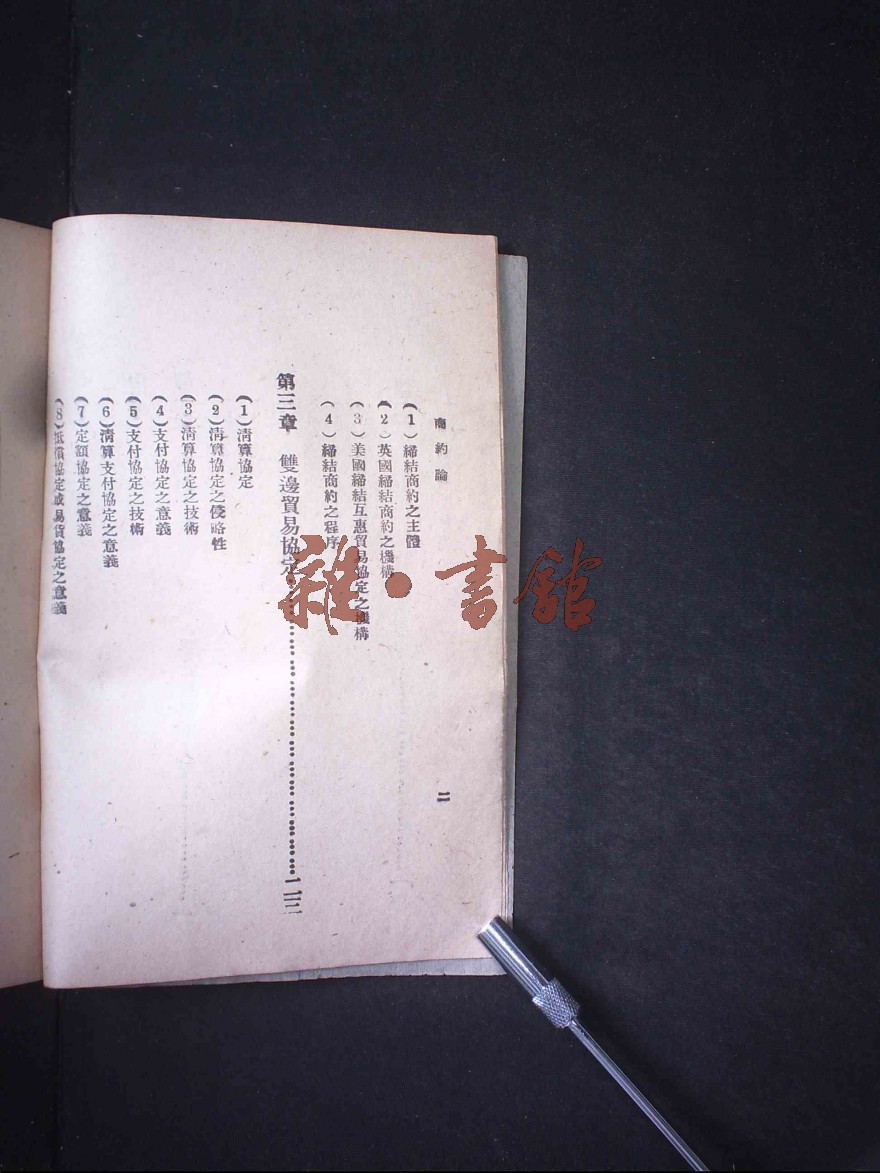 商約論
二
(1)締結商約之主體
(2)英國締結商約之機構
(3)美國締結互惠貿易協定之機構
(4)締結商約之程序
第三章 雙邊貿易協定……一二三
(1)清算協定
(2)清算協定之侵略性
(3)清算協定之技術
(4)支付協定之意義
(5)支付協定之技術
(6)清算支付協定之意義
(7)定額協定之意義
(8)抵償協定或易貨協定之意義
雜·書館